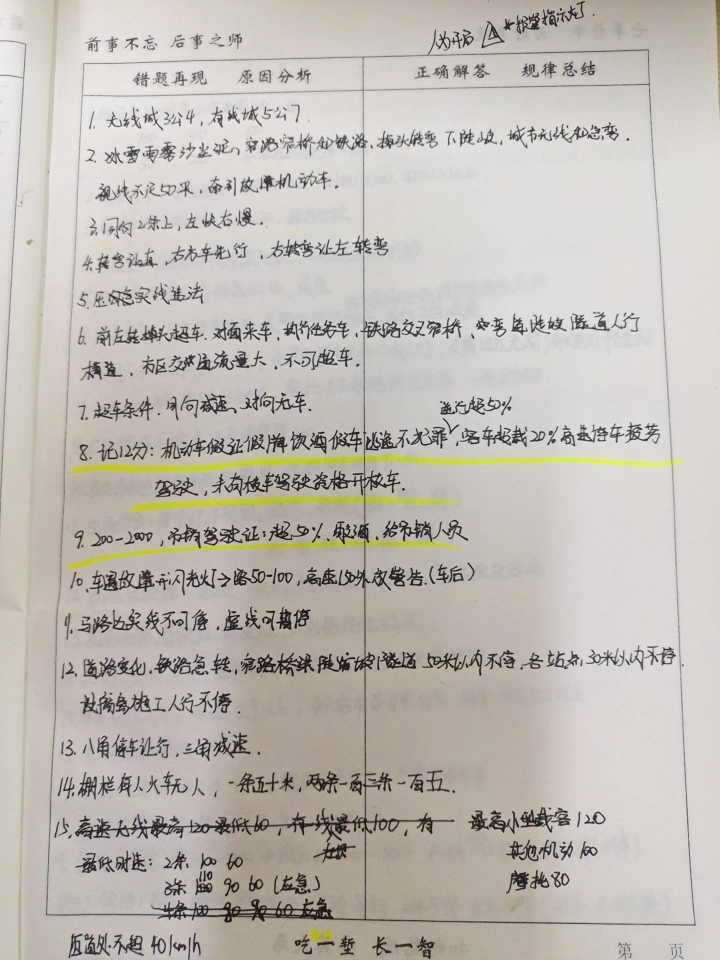 前事不忘 后事之师
*报警指示灯
错题再现 原因分析 正确解答 规律总结
1. 无线城3公4, 有线城5公7
2. 冰雪雨雾沙尘泥、窄路窄桥和铁路, 掉头转弯下陡坡, 城市无线和急弯.
视线不足50米, 牵引故障机动车.
3. 同向2条上, 左快右慢.
4. 转弯让直, 右方车先行, 右转弯让左转弯
5. 压实线违法
6. 前左转掉头超车. 对面来车, 执行任务车, 铁路交叉窄桥, 弯陡坡隧道人行
横道, 市区交通流量大, 不可超车.
7. 超车条件. 同向减速、对向无车.
超50%
8. 记12分: 机动车假证假牌饮酒 车逃逸不犯罪, 客车超载20% 高速停车
驾驶, 未有校车驾驶资格开校车.
9. 200-2000, 吊销驾驶证: 超50%、醉酒, 给吊销人员
10. 车遇故障开闪光灯 路50-100, 高速150外放警告. (车后)
11. 马路边实线不可停, 虚线可暂停
12. 道路变化, 铁路急转, 窄路桥梁陡 隧道 50米以内不停, 各站点, 30米以内不停.
施工人行不停.
13. 八角停车让行, 三角减速.
14. 栅栏有人火车无人, 一条五十米, 两条一百三条一百五.
15. 高速无线最高120最低60, 有一线最低100, 有 最高小型载客120
最低时速: 2条 100 60 其他机动100
3条 110 90 60 (应急) 摩托80
4条 100 90 90 60 应急
不超40km/h
吃一堑 长一智
第 页